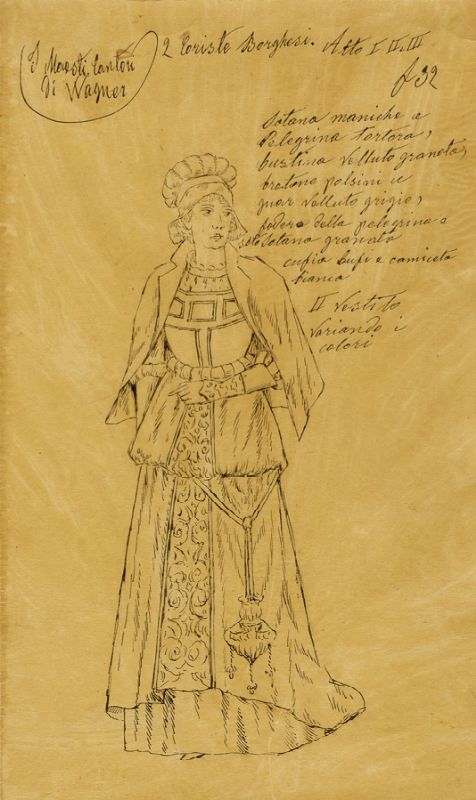 I Maestri Cantori
Di Wagner
2 Coriste Borghesi. Atto I II. III
f 32
Sotana maniche e
Pelegrina tortora,
bustina Velluto granata,
polsini e
guar Velluto grigio,
fodera della pelegrina e
sotana granata
cufia bufi e camiceta
bianca
II Vestito
Variando i
colori